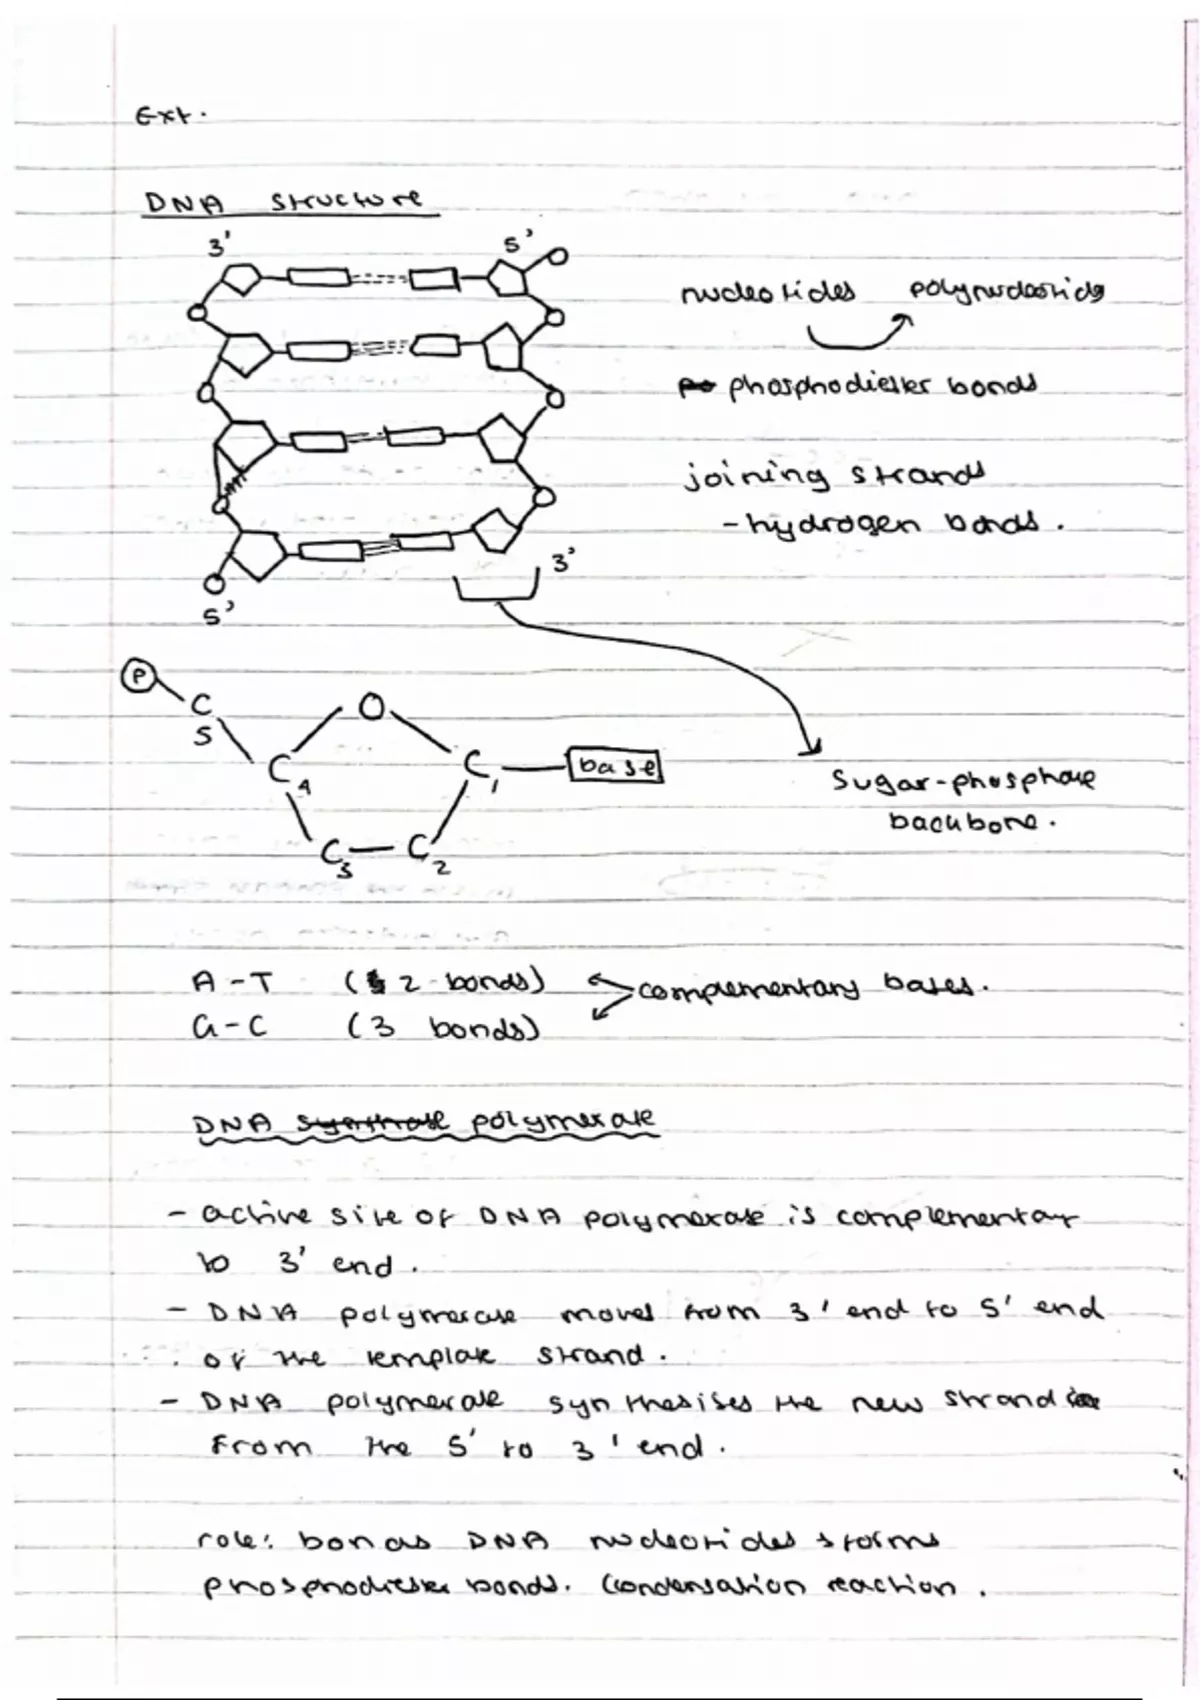 Ext.
DNA structure
3' 5'
nucleotides polynucleotide
phosphodiester bonds
joining strands
- hydrogen bonds.
3'
5'
P
C
5
O
C4
C1
base
C3
C2
sugar-phosphate
backbone.
A-T (2 bonds)
complementary bases.
G-C (3 bonds)
DNA synthase polymerase
- active site of DNA polymerase is complementary
to 3' end.
- DNA polymerase moves from 3' end to 5' end
of the template strand.
- DNA polymerase synthesises the new strand
from the 5' to 3' end.
role: bonds DNA nucleotides & forms
phosphodiester bonds. Condensation reaction.